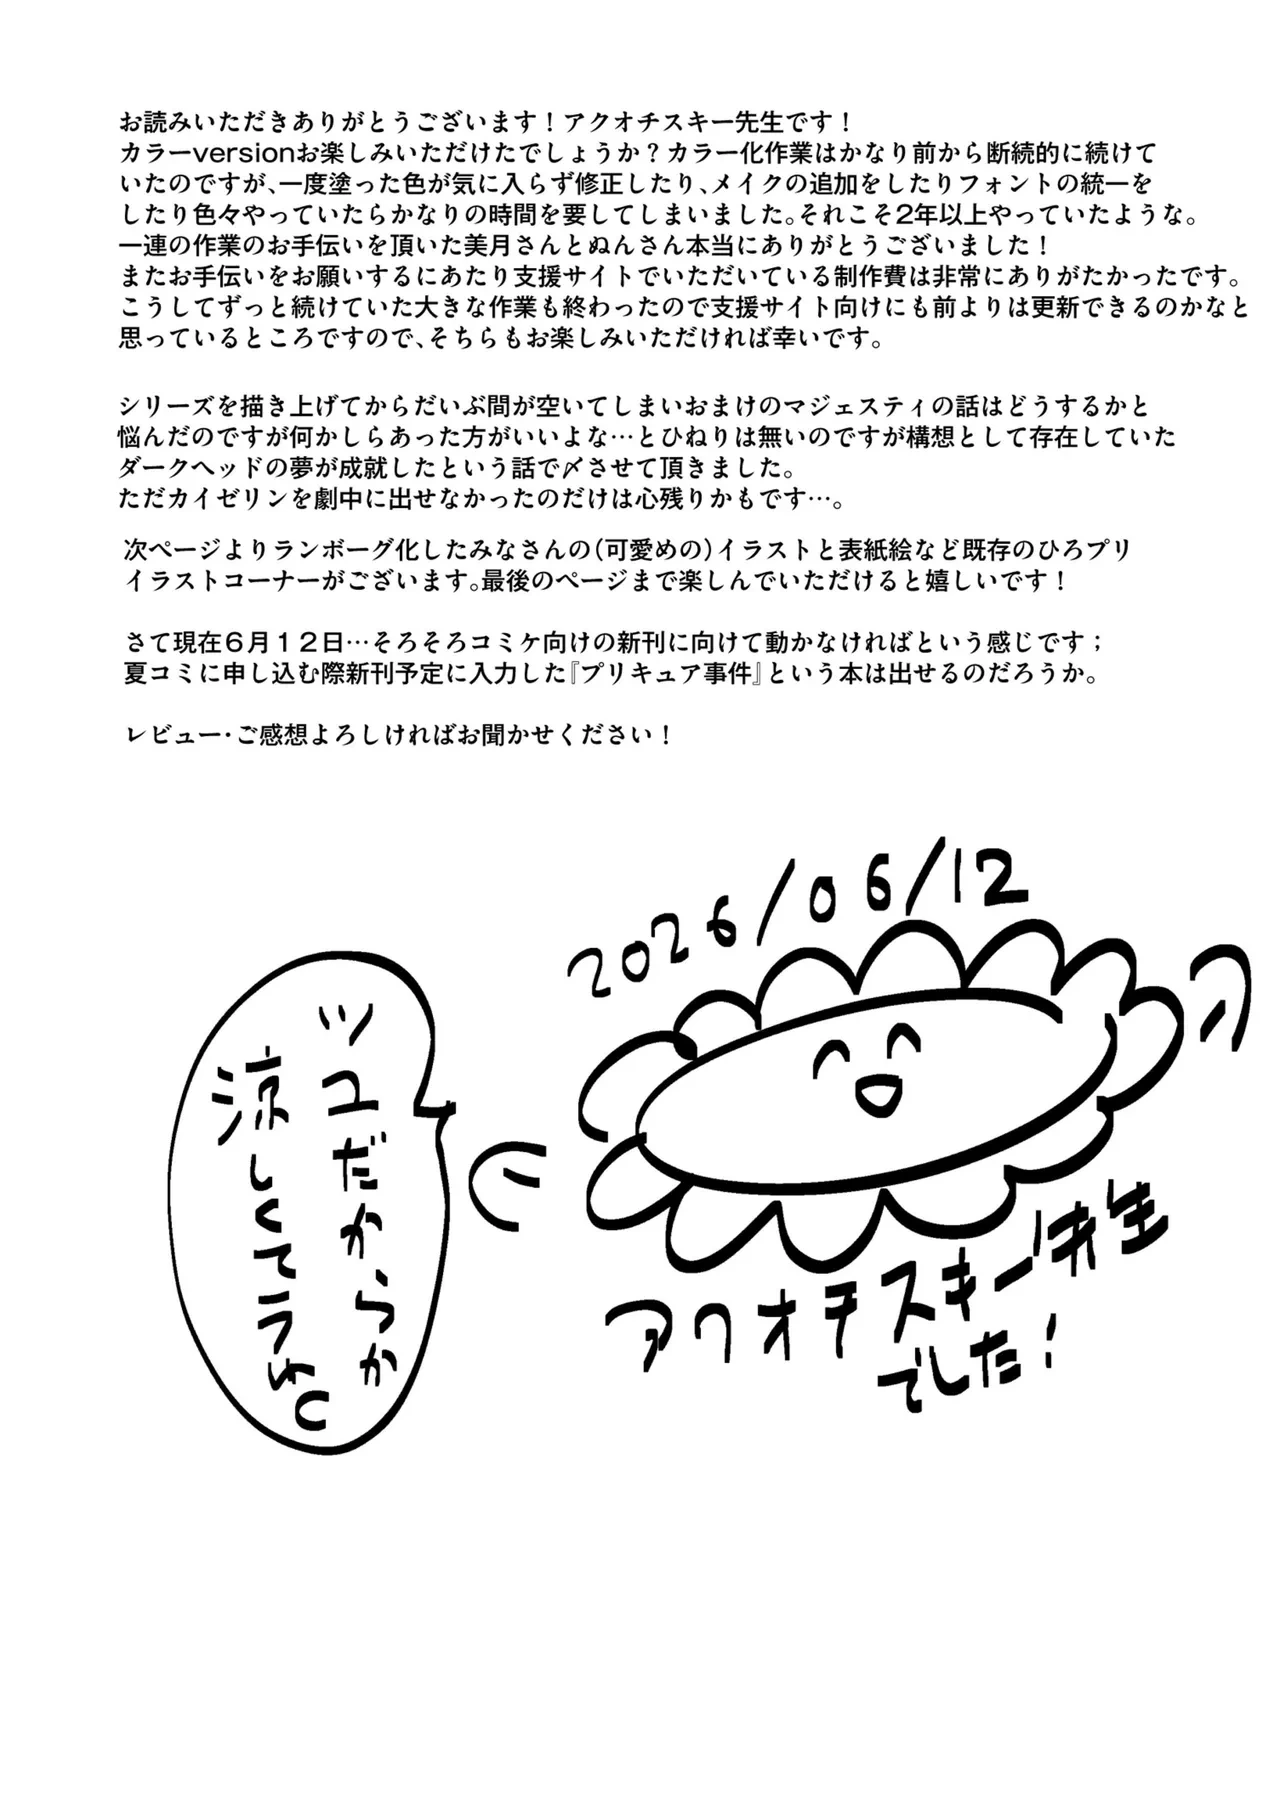 お読みいただきありがとうございます！アクオチスキー先生です！
カラーversionお楽しみいただけたでしょうか？カラー化作業はかなり前から断続的に続けて
いたのですが、一度塗った色が気に入らず修正したり、メイクの追加をしたりフォントの統一を
したり色々やっていたらかなりの時間を要してしまいました。それこそ2年以上やっていたような。
一連の作業のお手伝いを頂いた美月さんとぬんさん本当にありがとうございました！
またお手伝いをお願いするにあたり支援サイトでいただいている制作費は非常にありがたかったです。
こうしてずっと続けていた大きな作業も終わったので支援サイト向けにも前よりは更新できるのかなと
思っているところですので、そちらもお楽しみいただければ幸いです。
シリーズを描き上げてからだいぶ間が空いてしまいおまけのマジェスティの話はどうするかと
悩んだのですが何かしらあった方がいいよな…とひねりは無いのですが構想として存在していた
ダークヘッドの夢が成就したという話で〆させて頂きました。
ただカイゼリンを劇中に出せなかったのだけは心残りかもです…。
次ページよりランボーグ化したみなさんの（可愛めの）イラストと表紙絵など既存のひろプリ
イラストコーナーがございます。最後のページまで楽しんでいただけると嬉しいです！
さて現在６月１２日…そろそろコミケ向けの新刊に向けて動かなければという感じです；
夏コミに申し込む際新刊予定に入力した『プリキュア事件』という本は出せるのだろうか。
レビュー・ご感想よろしければお聞かせください！
2026/06/12
ツユだからか
涼しくてうれC
アクオチスキー先生
でした！